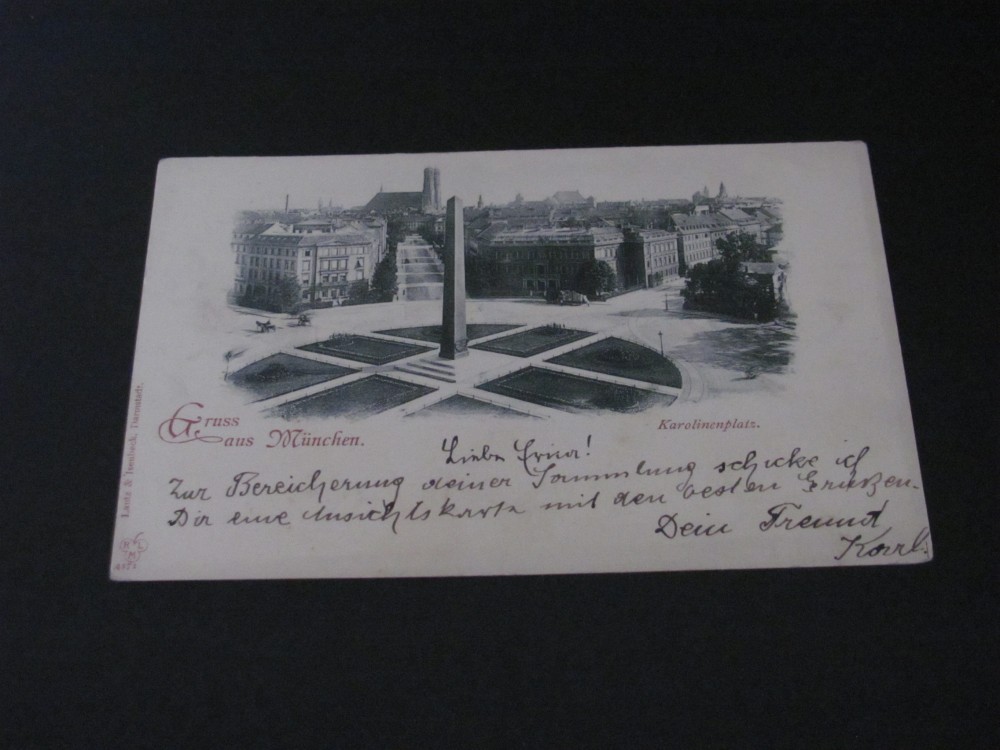 Gruss
aus München.
Karolinenplatz.
Liebe Erna!
Zur Bereicherung deiner Sammlung schicke ich
Dir eine Ansichtskarte mit den besten Grüßen.
Dein Freund
Karl.
Lautz & Isenbeck, Darmstadt.